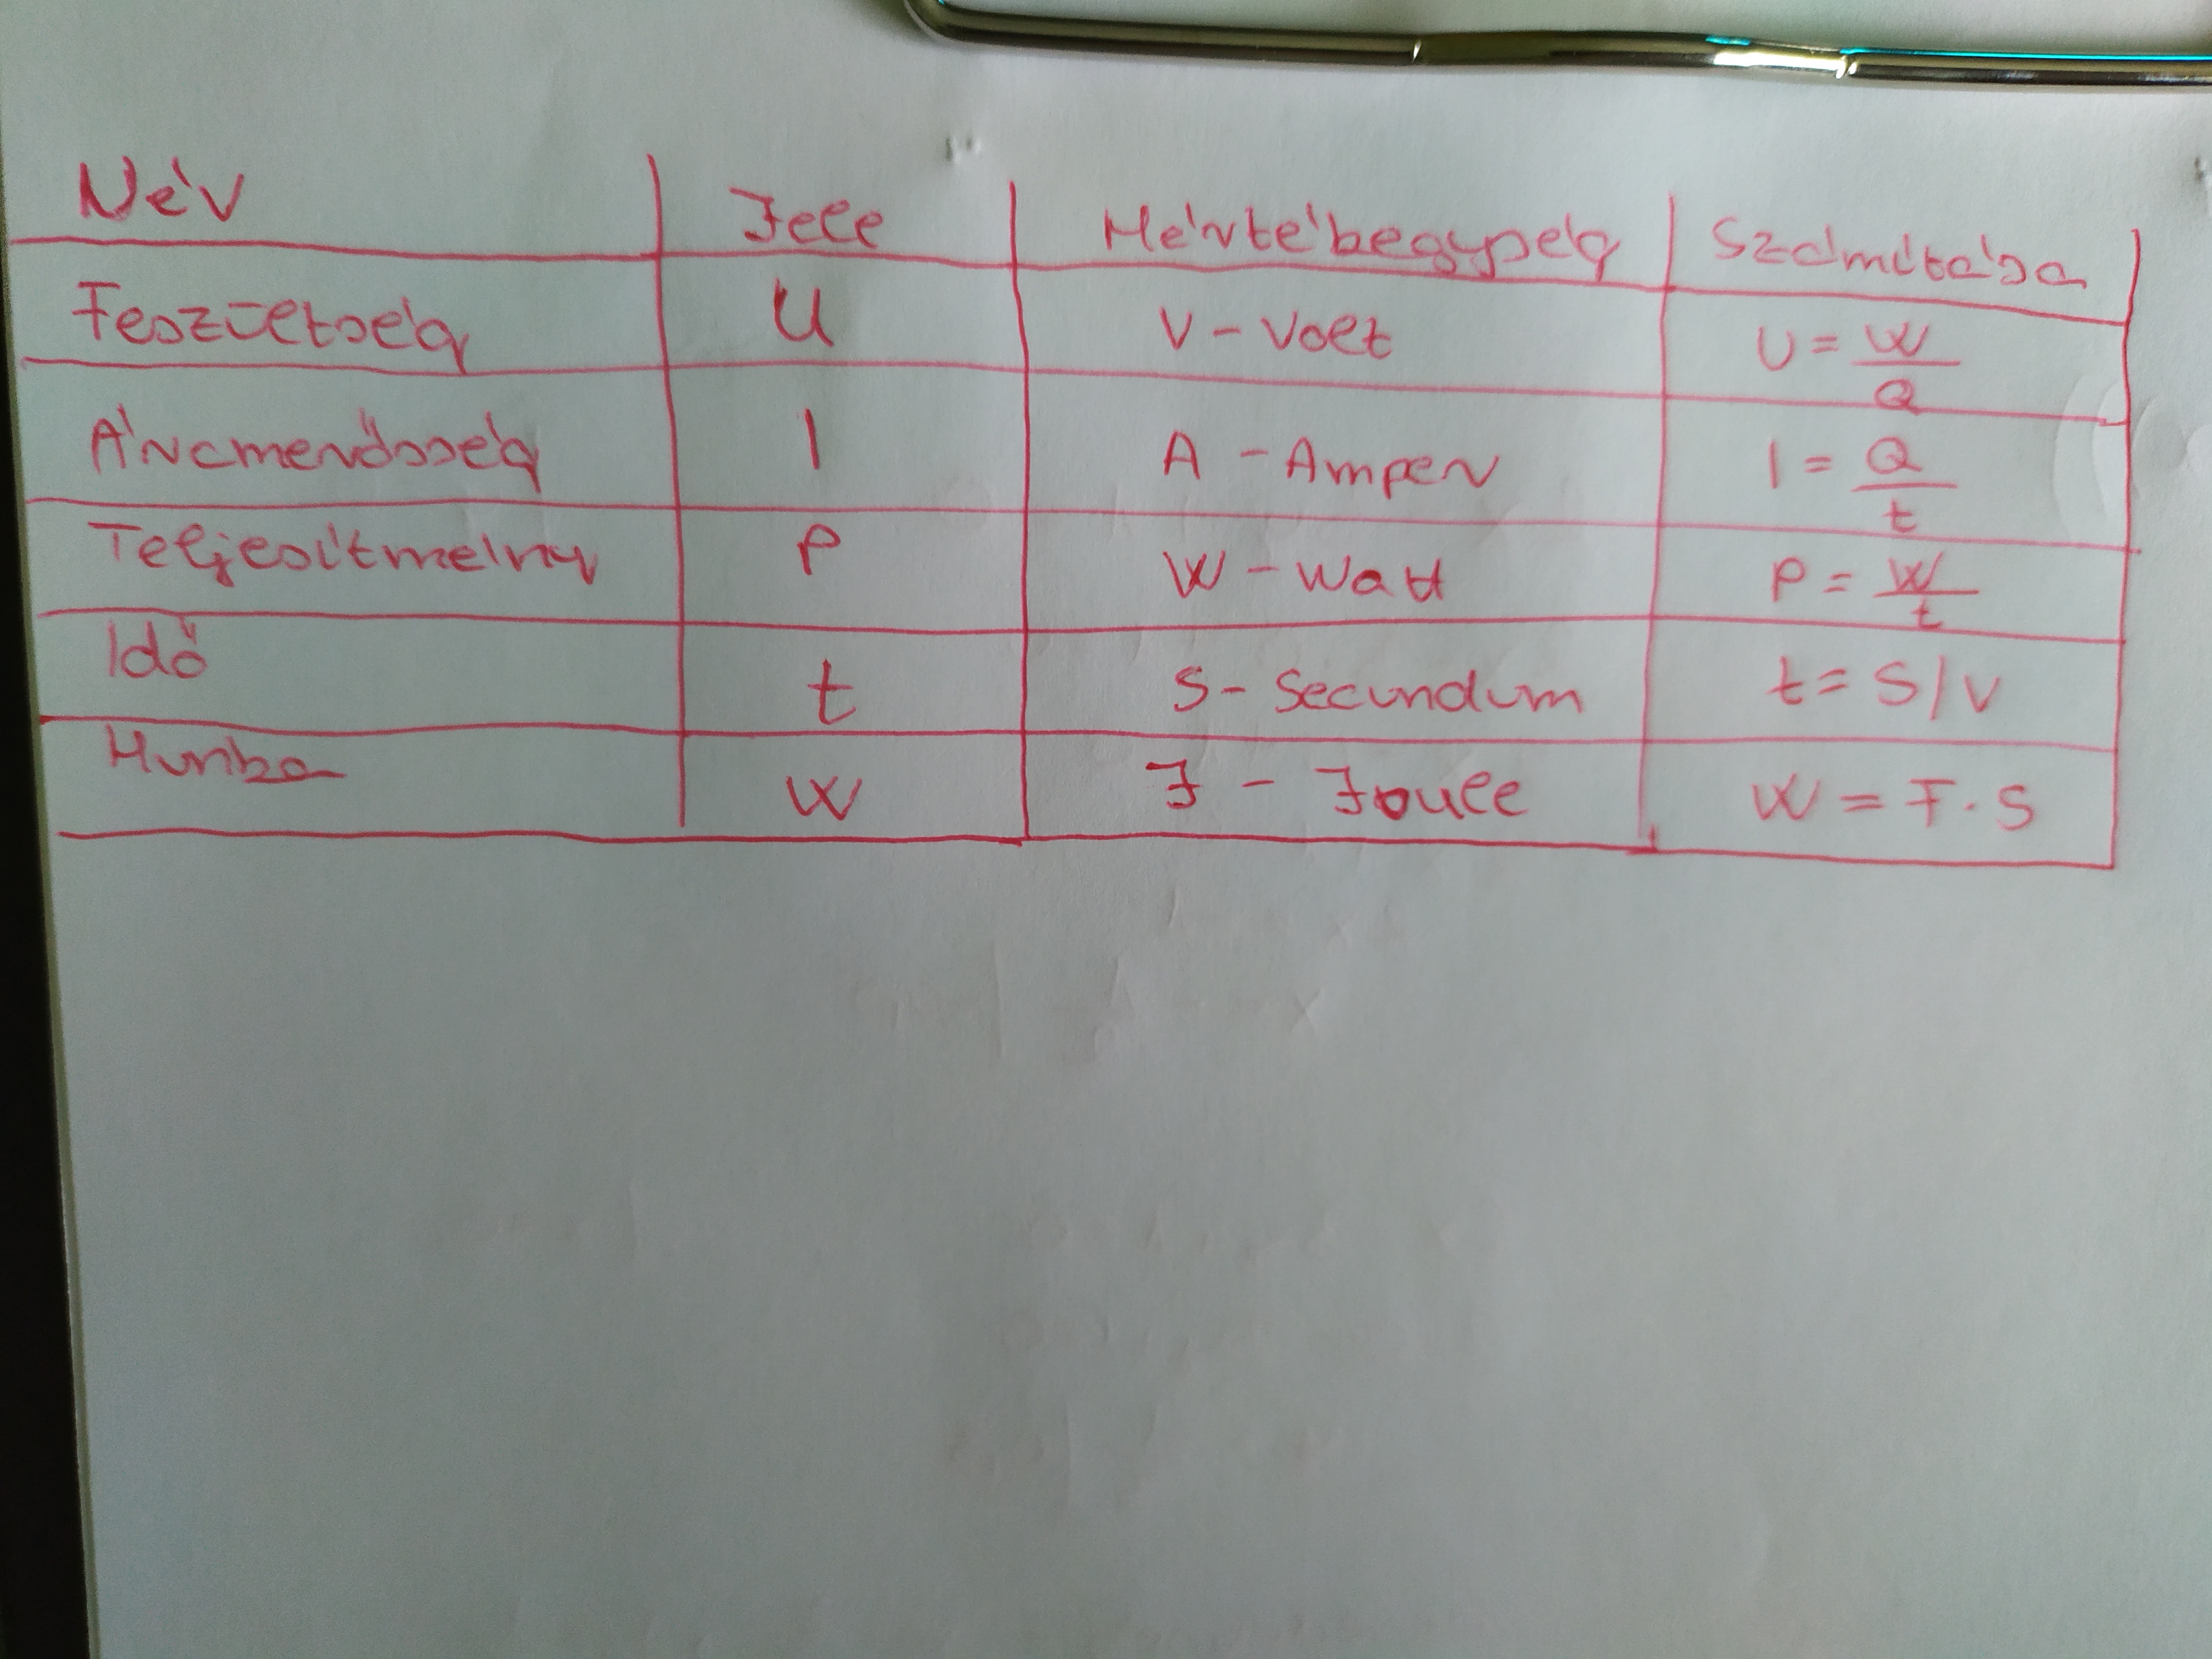 Név Jele Mértékbegység Számítása
Feszültség U V - Volt U = W/Q
Áramerősség I A - Amper I = Q/t
Teljesítmény P W - Watt P = W/t
Idő t S - Secundum t = S/V
Munka W J - Joule W = F · S